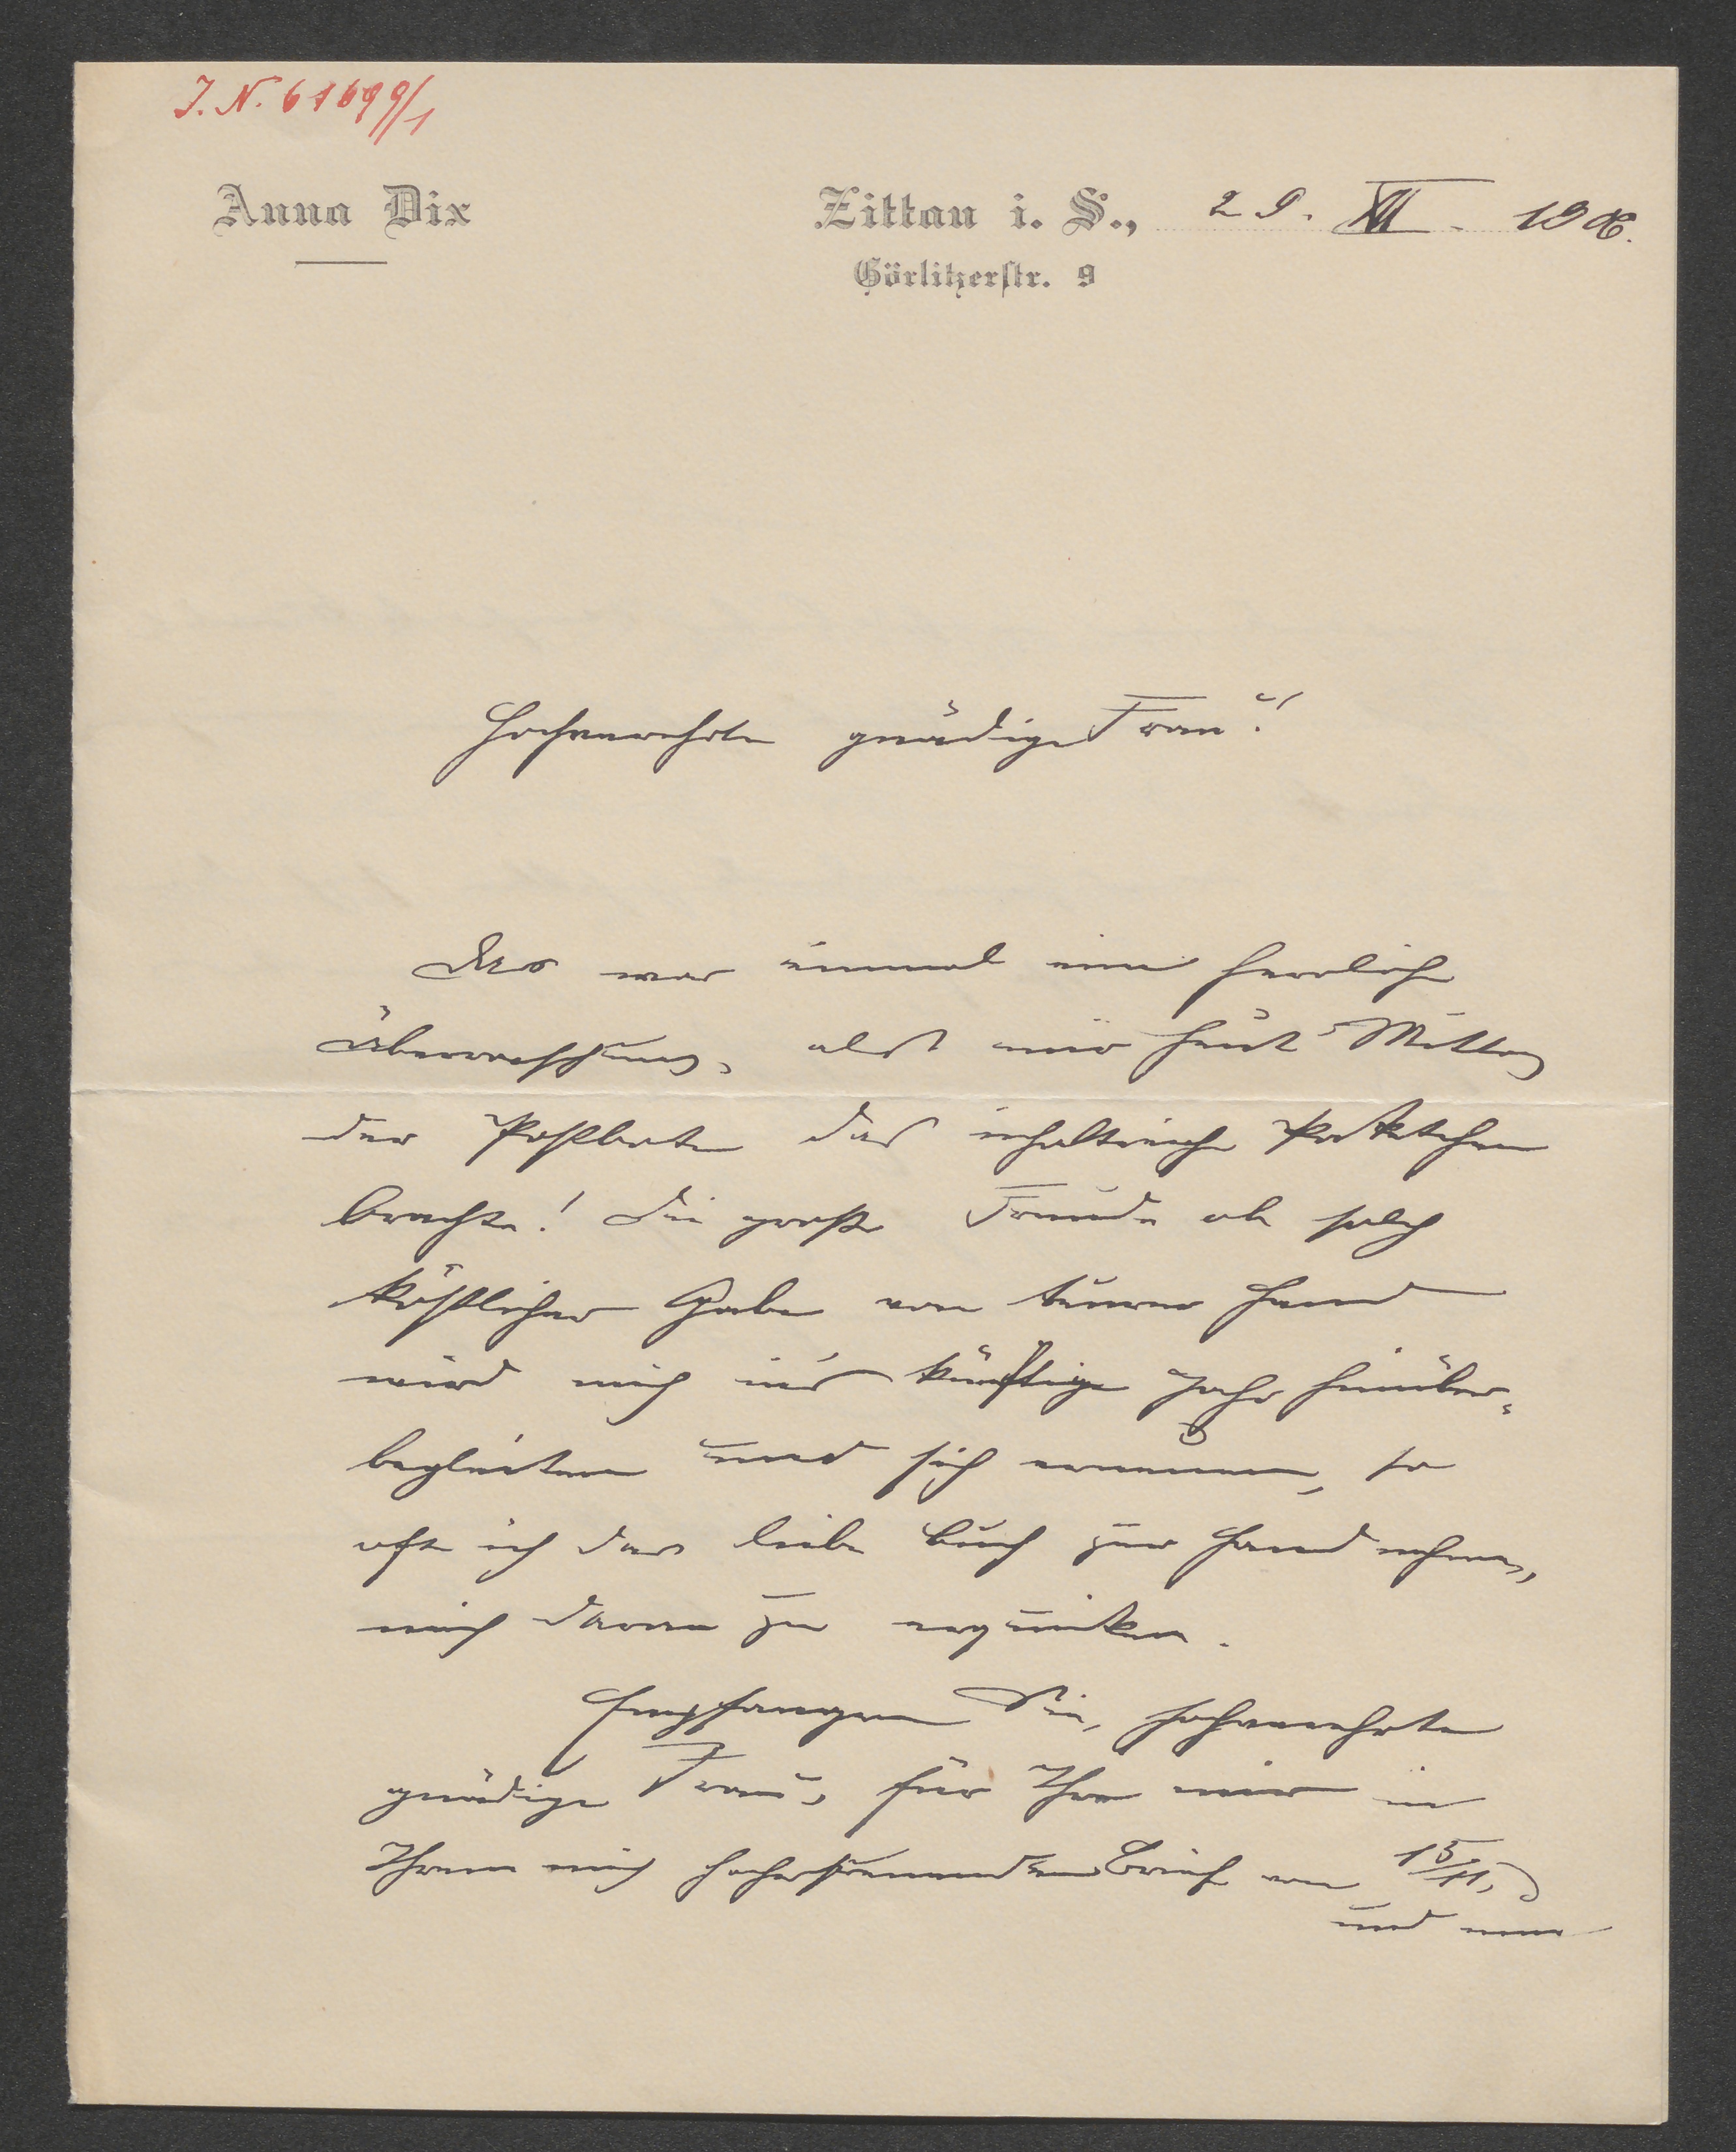 J. N. 61699/1
Anna Dix
Zittau i. S., 29. XII. 1906.
Görlitzerstr. 9
Hochverehrte gnädige Frau!
Das war einmal eine herrliche
Überraschung, als mir heut Mittag
der Postbote das inhaltreiche Paketchen
brachte! Die große Freude ob solch
köstlicher Gabe von teurer Hand
wird mich ins künftige Jahr hinüber-
begleiten und sich erneuern, so
oft ich das liebe Buch zur Hand nehme,
mich daran zu erquicken.
Empfangen Sie, hochverehrte
gnädige Frau, für Ihre mir in
Ihrem mich hocherfreuenden Brief vom 15/11,
und nun